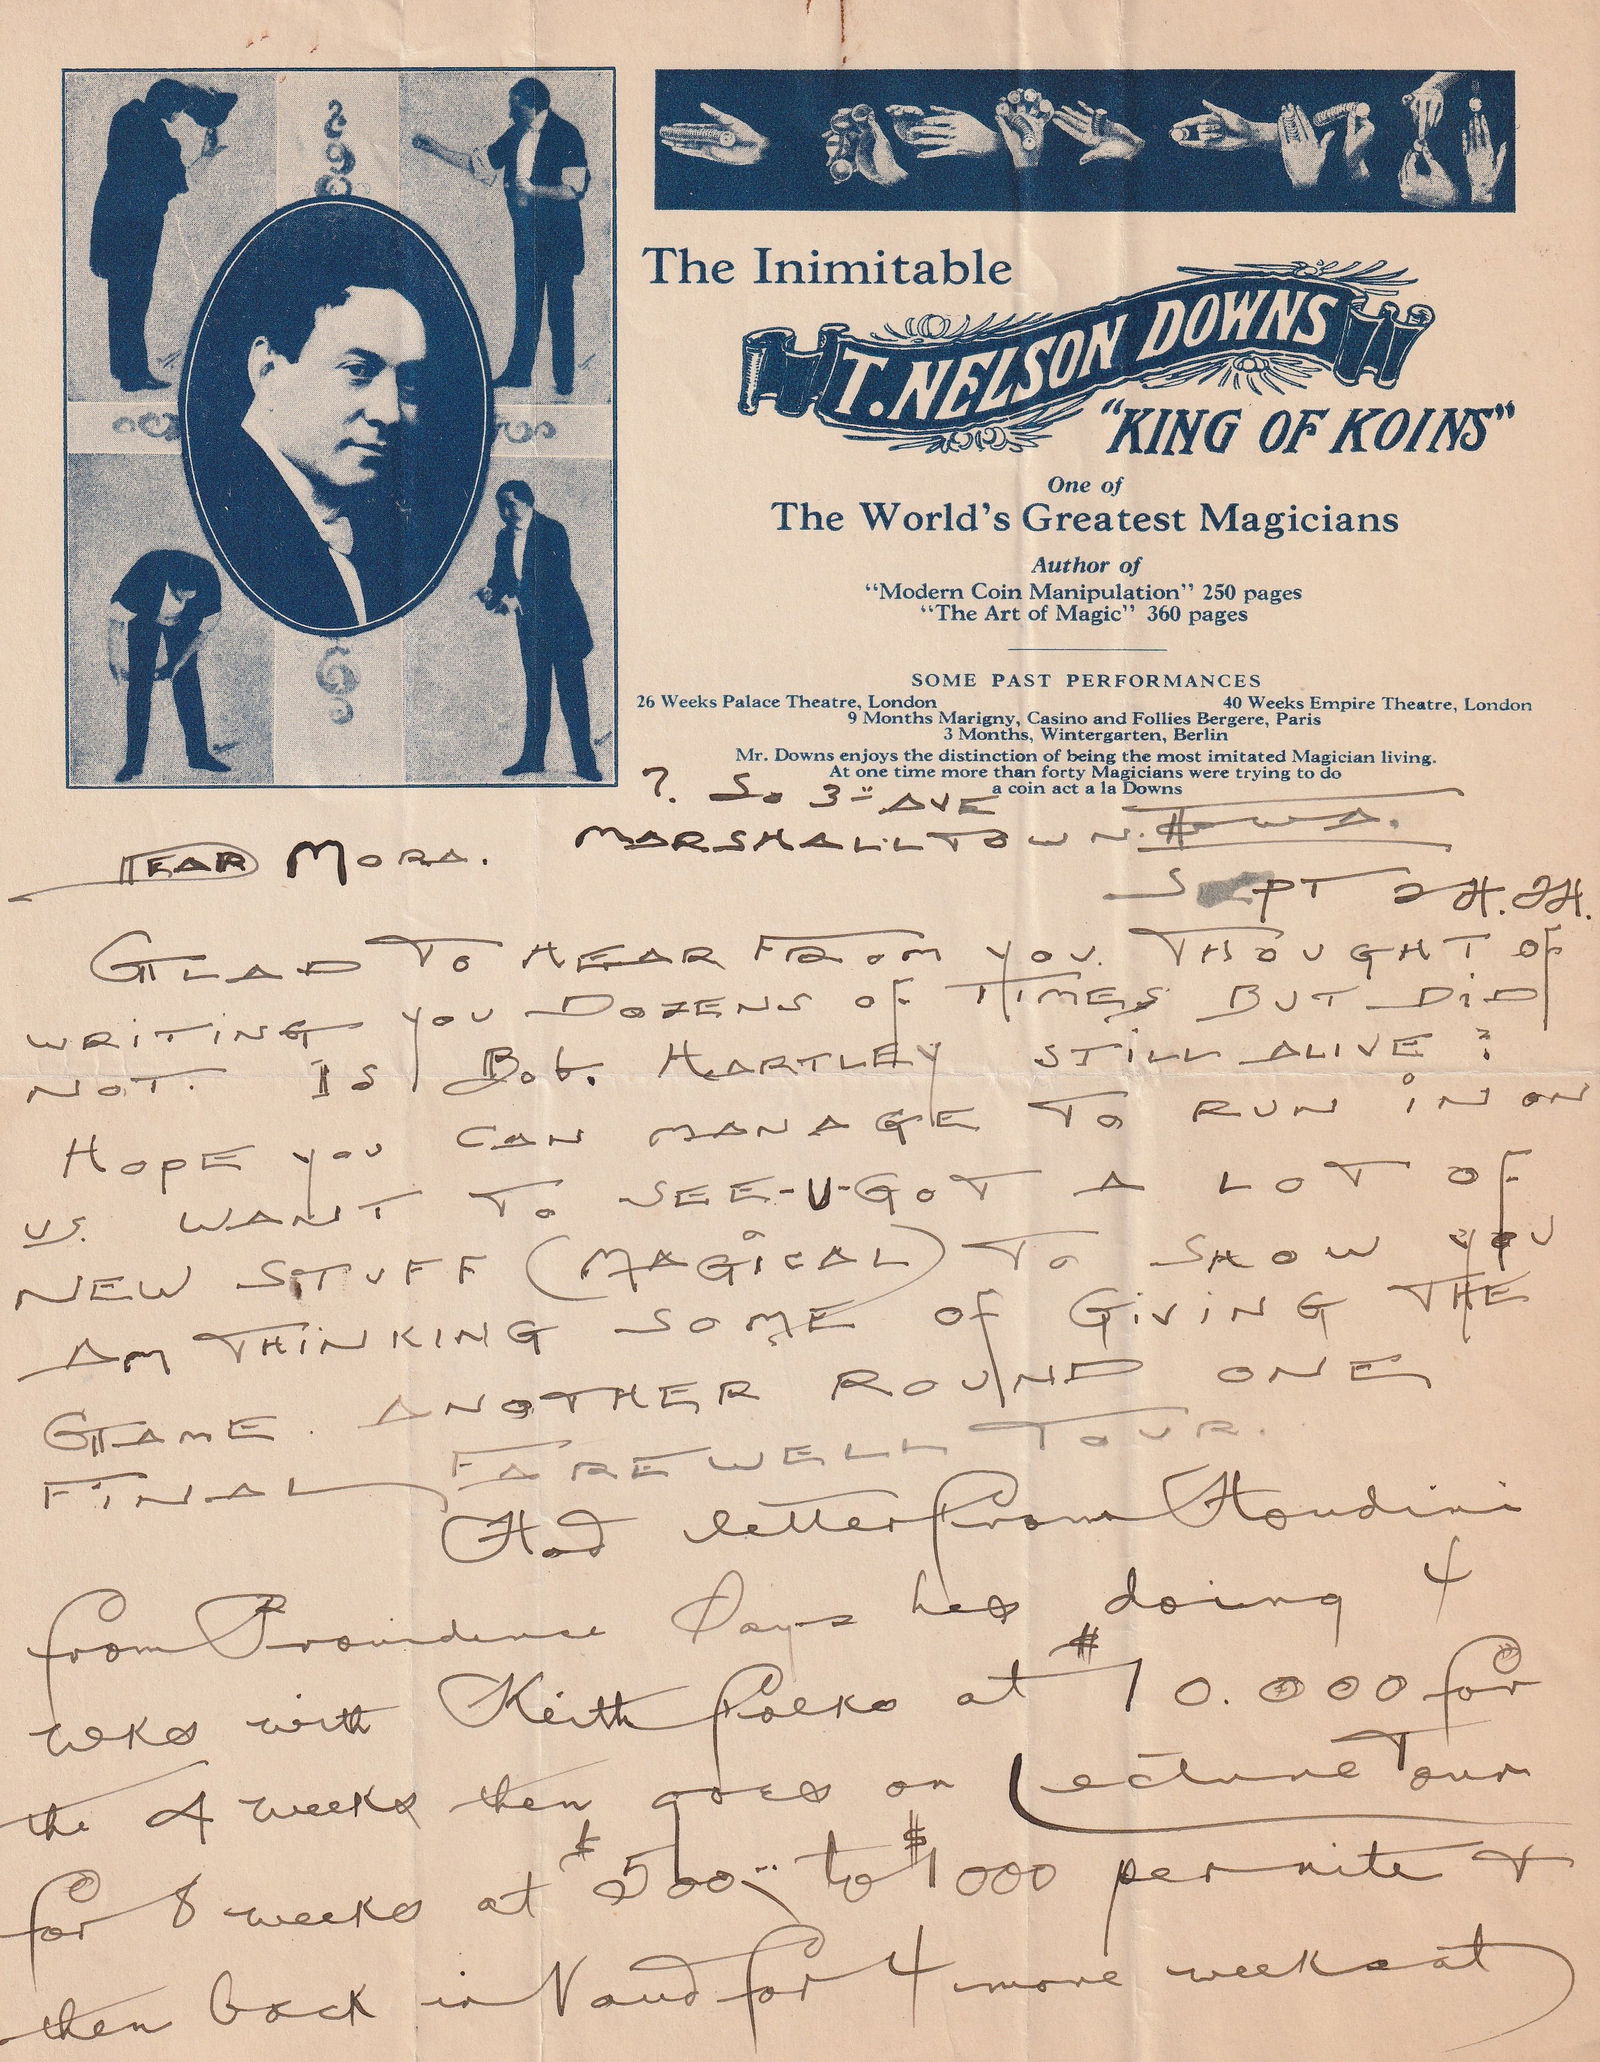 The Inimitable
T. NELSON DOWNS
"KING OF KOINS"
One of
The World's Greatest Magicians
Author of
"Modern Coin Manipulation" 250 pages
"The Art of Magic" 360 pages
SOME PAST PERFORMANCES
26 Weeks Palace Theatre, London 40 Weeks Empire Theatre, London
9 Months Marigny, Casino and Follies Bergere, Paris
3 Months, Wintergarten, Berlin
Mr. Downs enjoys the distinction of being the most imitated Magician living.
At one time more than forty Magicians were trying to do
a coin act a la Downs
7. So 3= AVE
MARSHALLTOWN. IOWA.
DEAR MORA.
SEPT 24. 24.
GLAD TO HEAR FROM YOU. THOUGHT OF
WRITING YOU DOZENS OF TIMES BUT DID
NOT. IS Bob. HARTLEY STILL ALIVE?
HOPE YOU CAN MANAGE TO RUN IN ON
US. WANT TO SEE-U-GOT A LOT OF
NEW STUFF (MAGICAL) TO SHOW YOU
AM THINKING SOME OF GIVING THE
GAME. ANOTHER ROUND ONE
FINAL FAREWELL TOUR.
Had letter from Houdini
from Providence Says hes doing 4
weks with Keith folks at $10.000 for
the 4 weeks then goes on Lecture Tour
for 8 weeks at $500.. to $1000 per nite &
then back in Vaud for 4 more weeks at